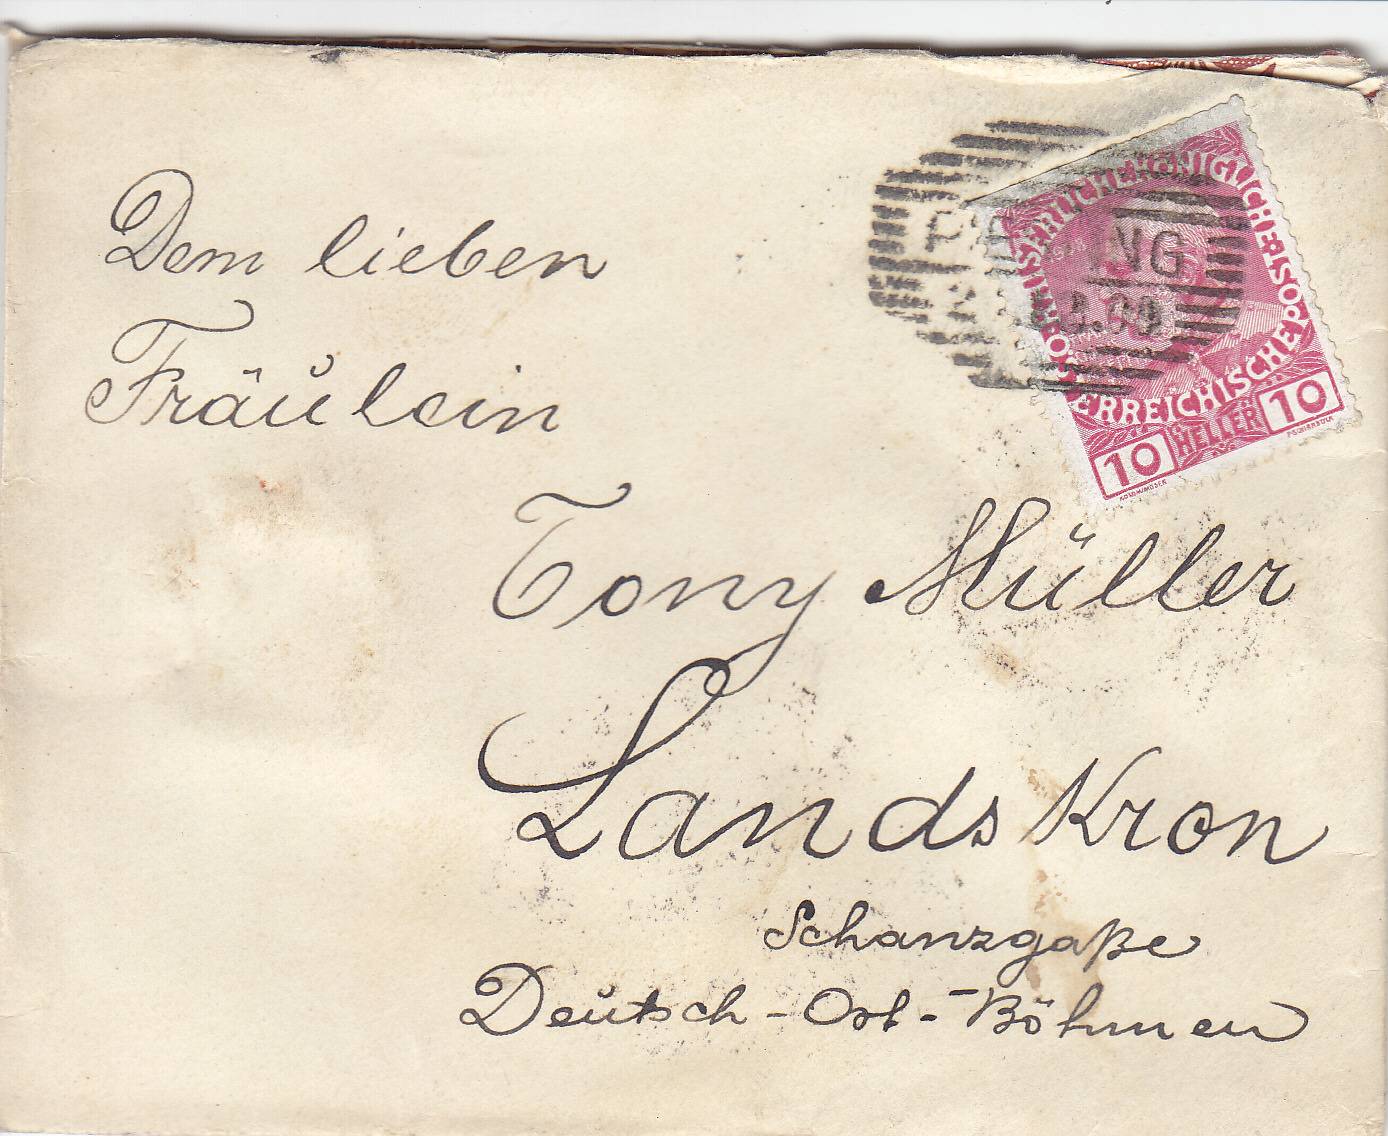 Dem lieben
Fräulein
Tony Müller
Landskron
Schanzgaße
Deutsch-Ost-Böhmen
KAISERLICHE KÖNIGLICHE ÖSTERREICHISCHE POS
10 HELLER 10